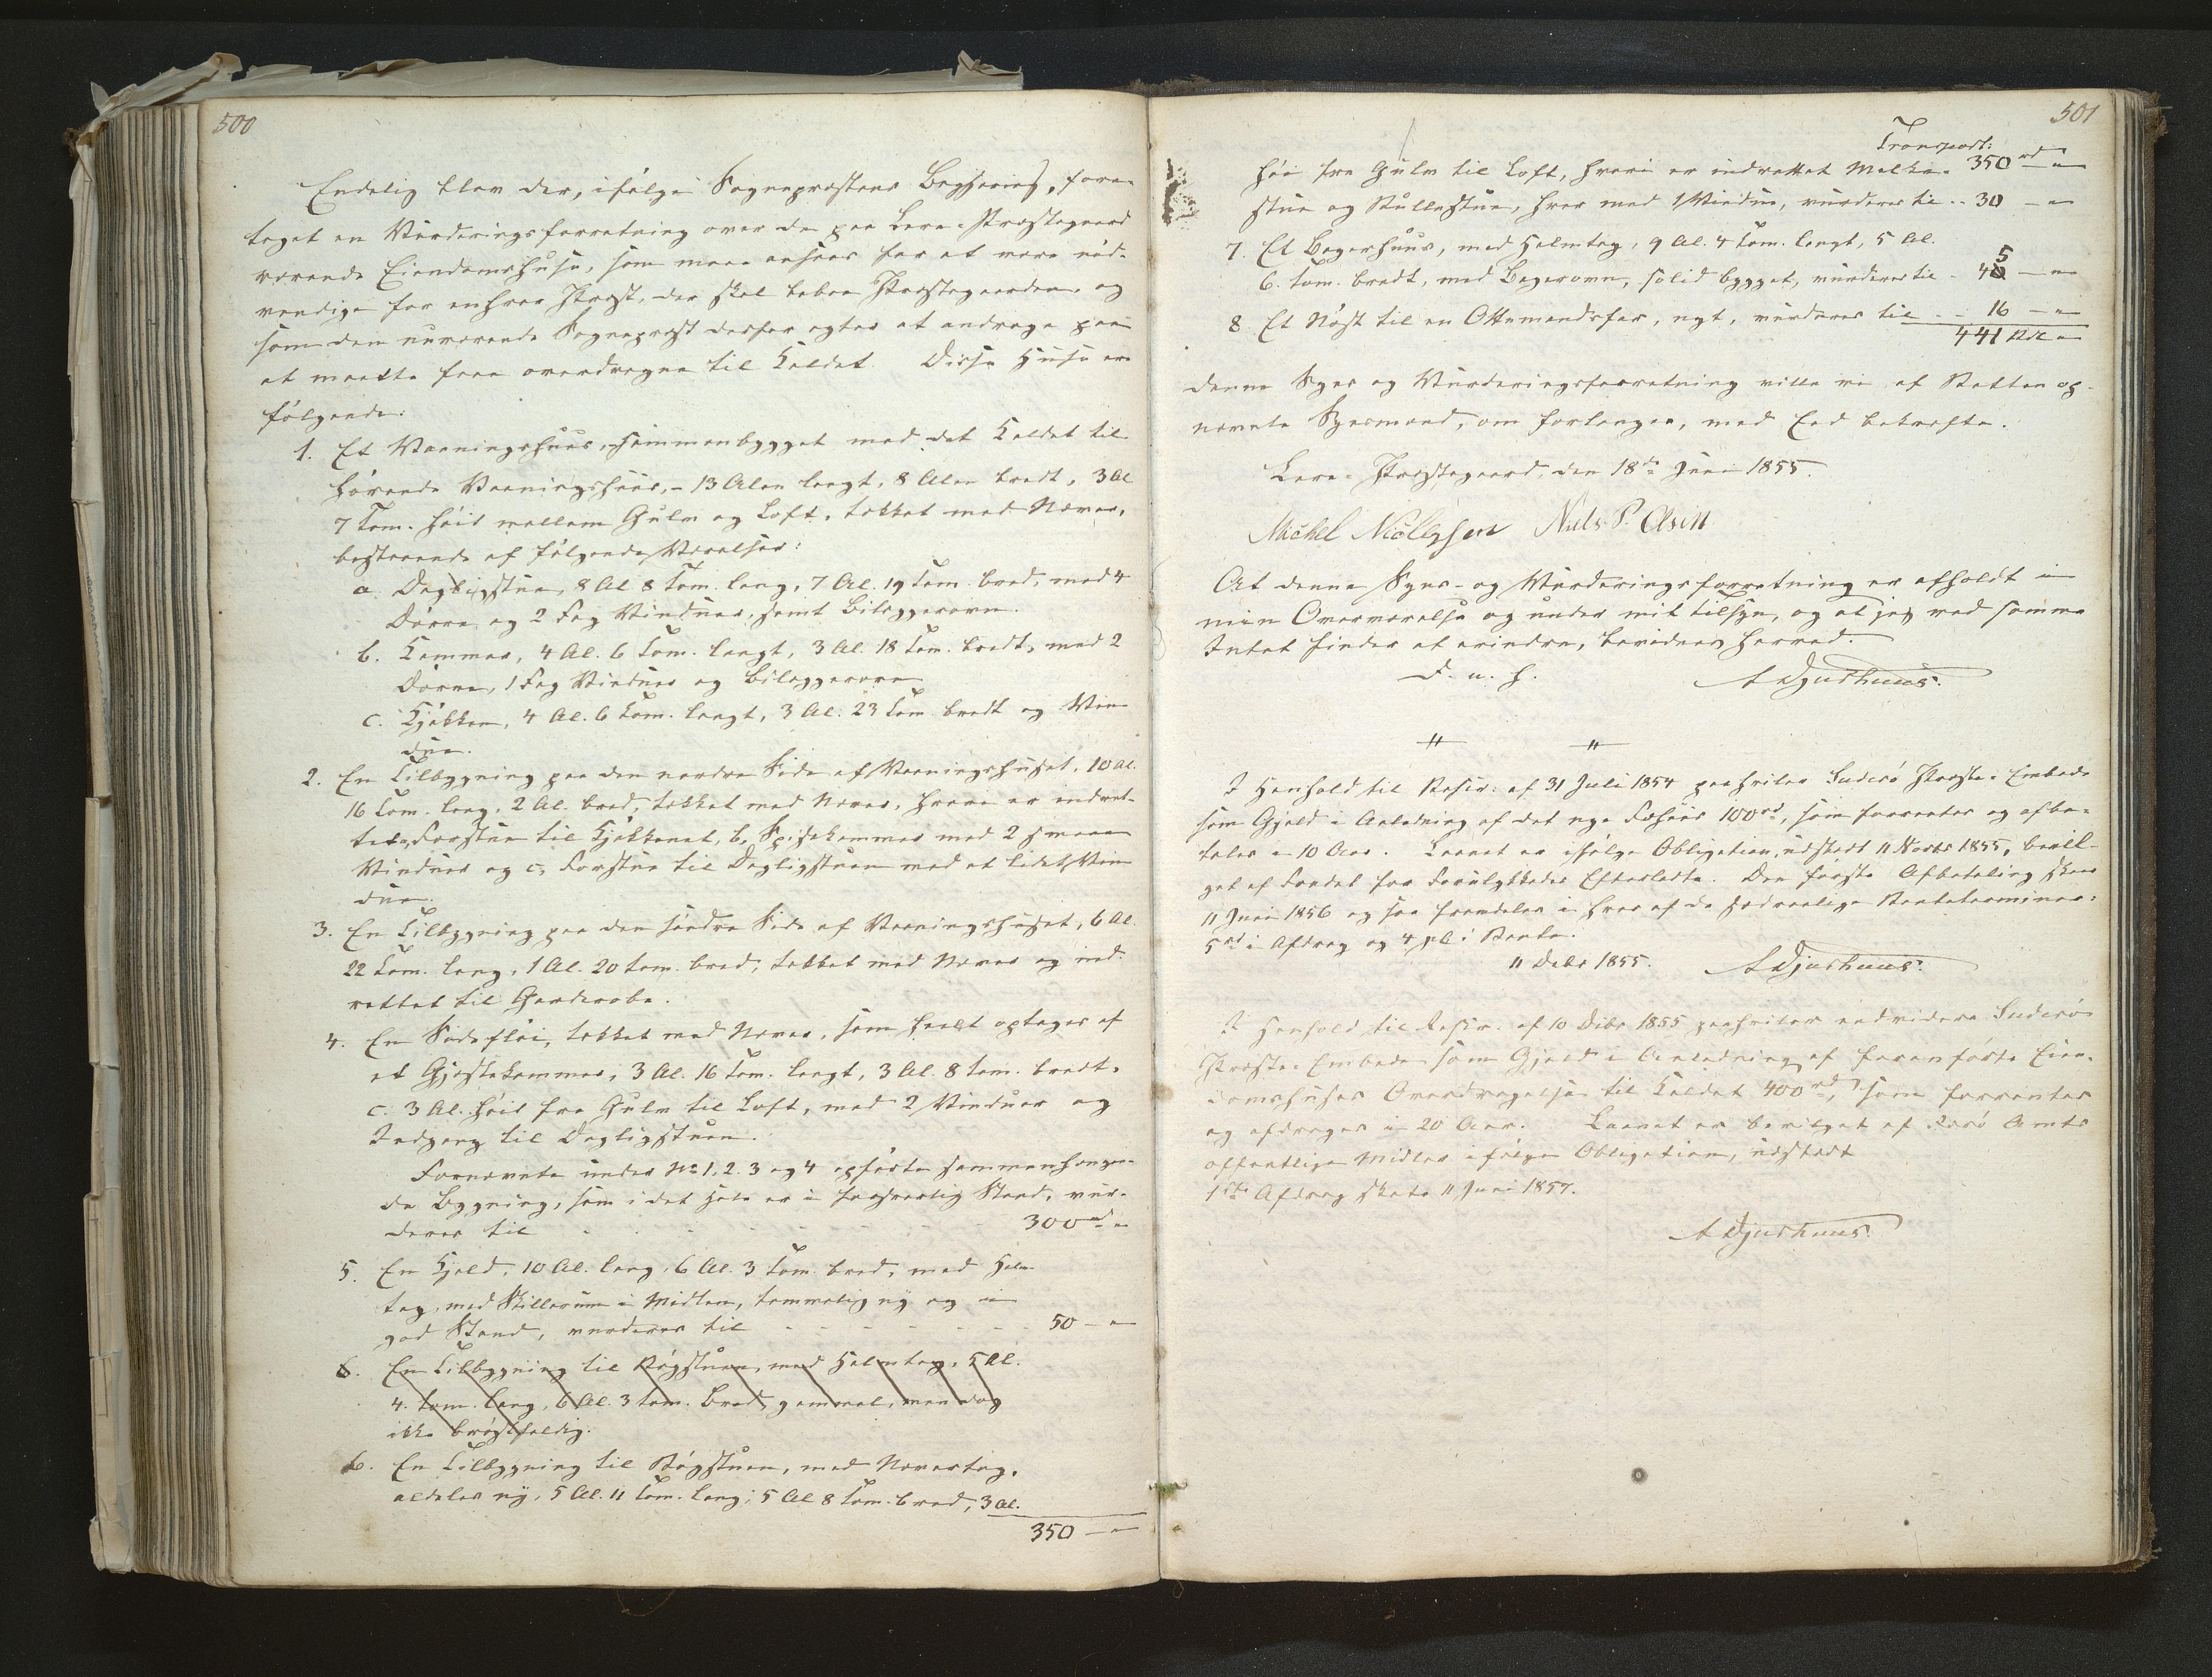 500
Endelig blev der, ifølge Sognepræstens Begjæring, fore-
taget en Vurderingsforretning over de paa Sere-Præstegaard
værende Eiendomshuse, som maae ansees for at være nød-
vendige for enhver Præst, der skal beboe Præstegaarden, og
som den nuværende Sognepræst derfor agter at andrage paa
at maatte faae overdragne til Kaldet. Disse Huse ere
følgende:
1. Et Vaaningshuus, sammenbygget med det Kaldet til-
hørende Vaaningshuus, – 13 Alen langt, 8 Alen bredt, 3 Al
7 Tom. høit mellem Gulv og Loft, tækket med Næver,
bestaaende af følgende Værelser:
a. Dagligstue, 8 Al 8 Tom. lang, 7 Al. 19 Tom. bred, med 4
Dørre og 2 Fag Vinduer, samt Bilæggerovn.
b. Kammer, 4 Al. 6 Tom. langt, 3 Al. 18 Tom. bredt, med 2
Dørre, 1 Fag Vinduer og Bilæggerovn
c. Kjøkken, 4 Al. 6 Tom. langt, 3 Al. 23 Tom bredt og Vin-
due.
2. En Tilbygning paa den nordre Side af Vaaningshuset, 10 Al.
16 Tom. lang, 2 Al. bred, tækket med Næver, hvori er indret-
tet a, Forstue til Kjøkkenet, b, Spisekammer med 2 smaae
Vinduer og c, Forstue til Dagligstuen med et lidet Vin-
due.
3. En Tilbygning paa den søndre Side af Vaaningshuset, 6 Al.
22 Tom. lang, 1 Al. 20 Tom. bred, tækket med Næver og ind-
rettet til Garderobe.
4. En Sidefløi, tækket med Næver, som heelt optages af
et Gjæstekammer, 3 Al. 16 Tom. langt, 3 Al. 8 Tom. bredt,
c. 3 Al. høit fra Gulv til Loft, med 2 Vinduer og
Indgang til Dagligstuen.
Fornævnte under No 1, 2. 3 og 4 opførte sammenhængen-
de Bygning, som i det Hele er i forsvarlig Stand, vur-
deres til - - - - - - 300 rd "
5. En Hjeld, 10 Al. lang, 6 Al. 3 Tom. bred, med Halm-
tag, med Skillerum i Midten, temmelig ny og i
god Stand, vurderes til - - - - - - 50 – "
6. En Tilbygning til Røgstuen, med Halmtag, 5 Al.
4. Tom. lang, 6 Al. 3 Tom. bred, gammel, men dog
ikke brøstfældig.
6. En Tilbygning til Røgstuen, med Nævertag,
aldeles ny, 5 Al. 11 Tom. lang, 5 Al 8 Tom. bred, 3 Al.
350 – "
501
Transport:
høi fra Gulv til Loft, hvori er indrettet Melke- 350 rd "
stue og Rullestue, hver med 1 Vindue, vurderes til - - 30 – "
7. Et Bagerhuus, med Halmtag, 9 Al. 4 Tom. langt, 5 Al.
6. Tom. bredt, med Bagerovn, solid bygget, vurderes til - 45 – "
8 Et Nøst til en Ottemandsfar, nyt, vurderes til - - 16 – "
441 Rdl "
Denne Syns og Vurderingsforretning ville vi af Retten op-
nævnte Synsmænd, om forlanges, med Eed bekræfte.
Sere-Præstegaard, den 18de Juni 1855.
Michel Niclassen Niels P. Olsen
At denne Syns- og Vurderingsforretning er afholdt i
min Overværelse og under mit tilsyn, og at jeg ved samme
Intet finder at erindre, bevidnes herved.
D. u. s.
A Djurhuus.
I Henhold til Rescr: af 31 Juli 1854 paahviler Suderø Præste-Embede
som Gjæld i Anledning af det nye Fæhuus 100 rd, som forrentes og afbe-
tales i 10 Aar. Laanet er ifølge Obligation, udstedt 11 Novbr 1855, bevil-
get af Fondet for Forulykkedes Efterladte. Den første Afbetaling skeer
11 Juni 1856 og saa fremdeles i hver af de sædvanlige Renteterminer:
5 rd i Afdrag og 4 pCt Rente.
11 Debr 1855.
A Djurhuus.
I Henhold til Rescr: af 10 Debr 1855 paahviler endvidere Suderø
Præste-Embede som Gjæld i Anledning af foranførte Eien-
domshuses Overdragelse til Kaldet 400 rd, som forrentes
og afdrages i 20 Aar. Laanet er bevilget af Færø Amts
offentlige Midler ifølge Obligation, udstedt
1ste Afdrag skete 11 Juni 1857.
A Djurhuus.